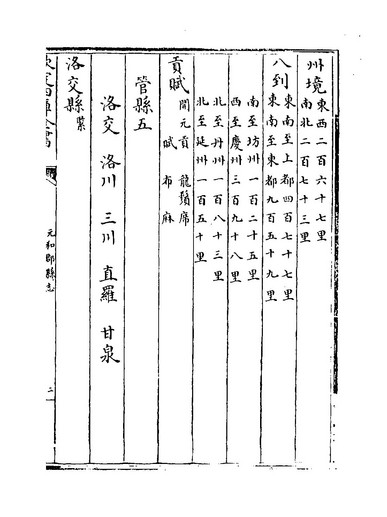 州境東西二百六十七里
南北二百七十三里
八到東南至上都四百七十七里
東南至東都九百五十九里
南至坊州一百二十五里
西至慶州三百九十八里
北至丹州一百八十三里
北至延州一百五十里
貢賦開元貢龍鬚席
賦布麻
管縣五
洛交 洛川 三川 直羅 甘泉
洛交縣緊
元和郡縣志
二